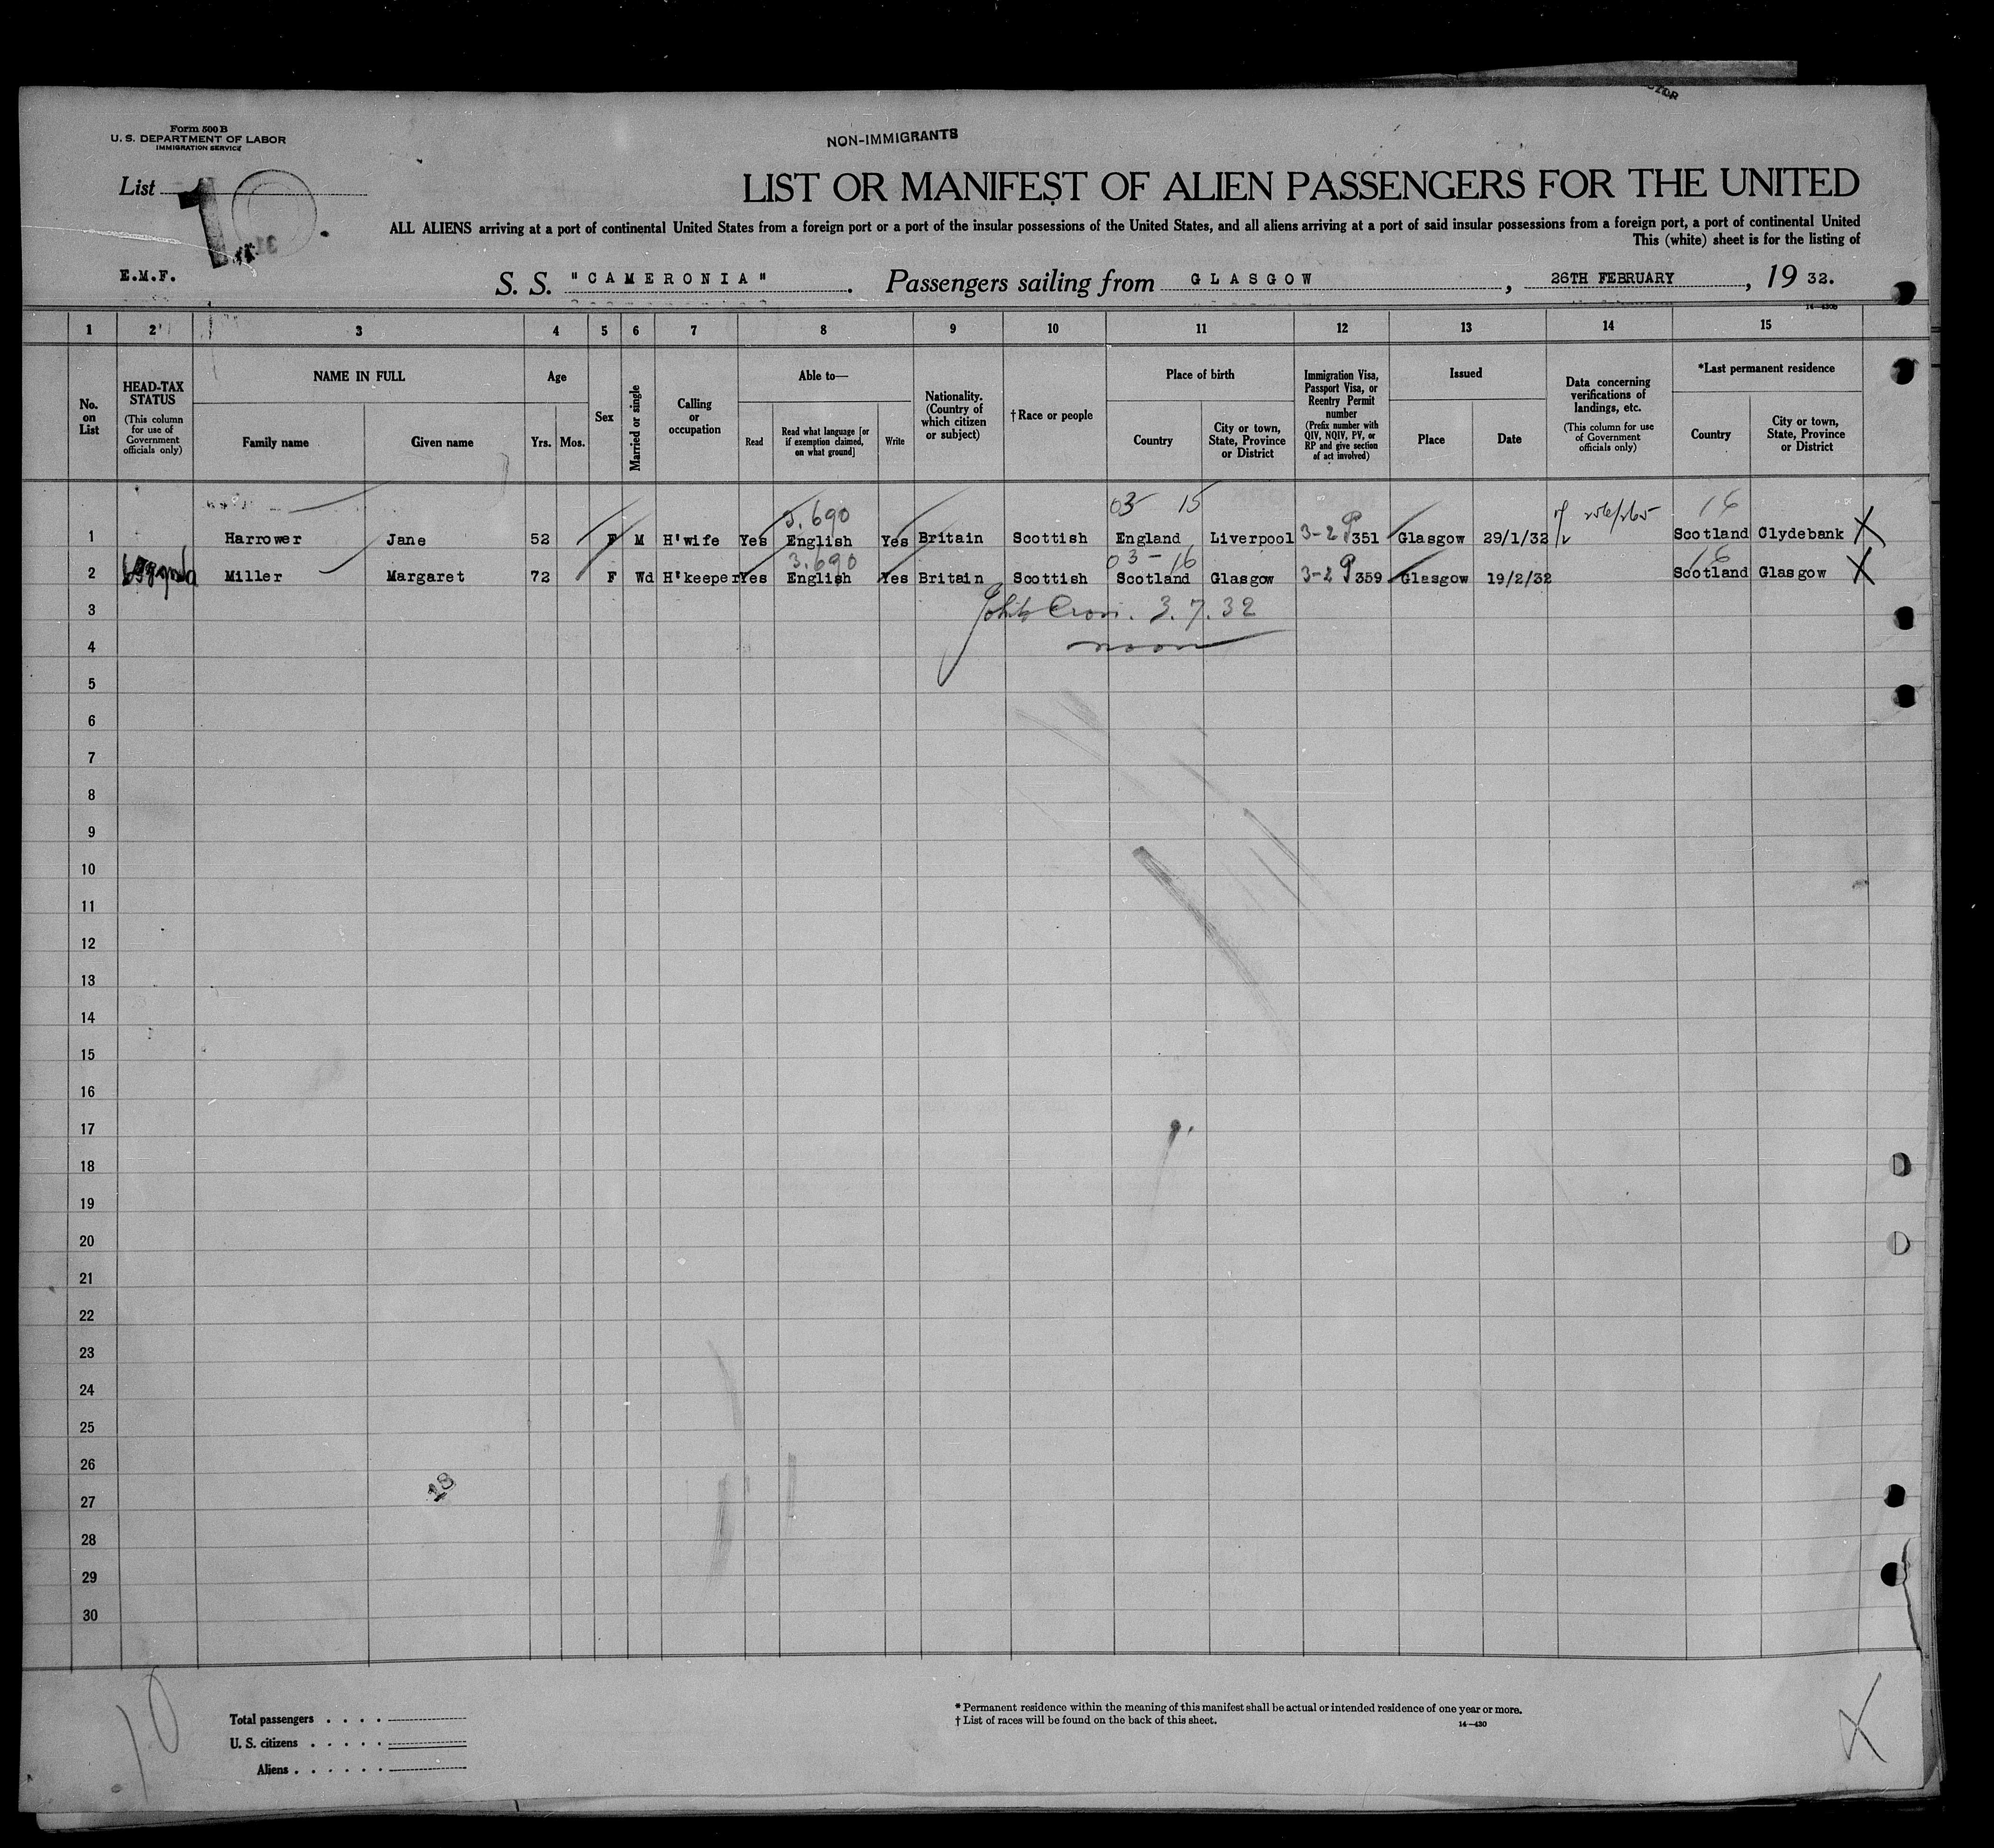 Form 500 B
U. S. DEPARTMENT OF LABOR
IMMIGRATION SERVICE
NON-IMMIGRANTS
List
LIST OR MANIFEST OF ALIEN PASSENGERS FOR THE UNITED
ALL ALIENS arriving at a port of continental United States from a foreign port or a port of the insular possessions of the United States, and all aliens arriving at a port of said insular possessions from a foreign port, a port of continental United
This (white) sheet is for the listing of
E.M.F.
S. S. "CAMERONIA". Passengers sailing from GLASGOW, 26TH FEBRUARY, 19 32.
1 2 3 4 5 6 7 8 9 10 11 12 13 14 15
No. on List
HEAD-TAX STATUS
(This column for use of Government officials only)
NAME IN FULL
Family name
Given name
Age
Yrs.
Mos.
Sex
Married or single
Calling or occupation
Able to—
Read
Read what language [or if exemption claimed, on what ground]
Write
Nationality. (Country of which citizen or subject)
† Race or people
Place of birth
Country
City or town, State, Province or District
Immigration Visa, Passport Visa, or Reentry Permit number
(Prefix number with QIV, NQIV, PV, or RP and give section of act involved)
Issued
Place
Date
Data concerning verifications of landings, etc.
(This column for use of Government officials only)
*Last permanent residence
Country
City or town, State, Province or District
03 15 16
1 Harrower Jane 52 F M H'wife Yes English Yes Britain Scottish England Liverpool 3-2 P 351 Glasgow 29/1/32 Scotland Clydebank X
3.690 03-16 16
2 Miller Margaret 72 F Wd H'keeper Yes English Yes Britain Scottish Scotland Glasgow 3-2 P 359 Glasgow 19/2/32 Scotland Glasgow X
3 3.7.32
4 noon
5
6
7
8
9
10
11
12
13
14
15
16
17
18
19
20
21
22
23
24
25
26
27
28
29
30
10
Total passengers
U. S. citizens
Aliens
* Permanent residence within the meaning of this manifest shall be actual or intended residence of one year or more.
† List of races will be found on the back of this sheet.
14—430
X